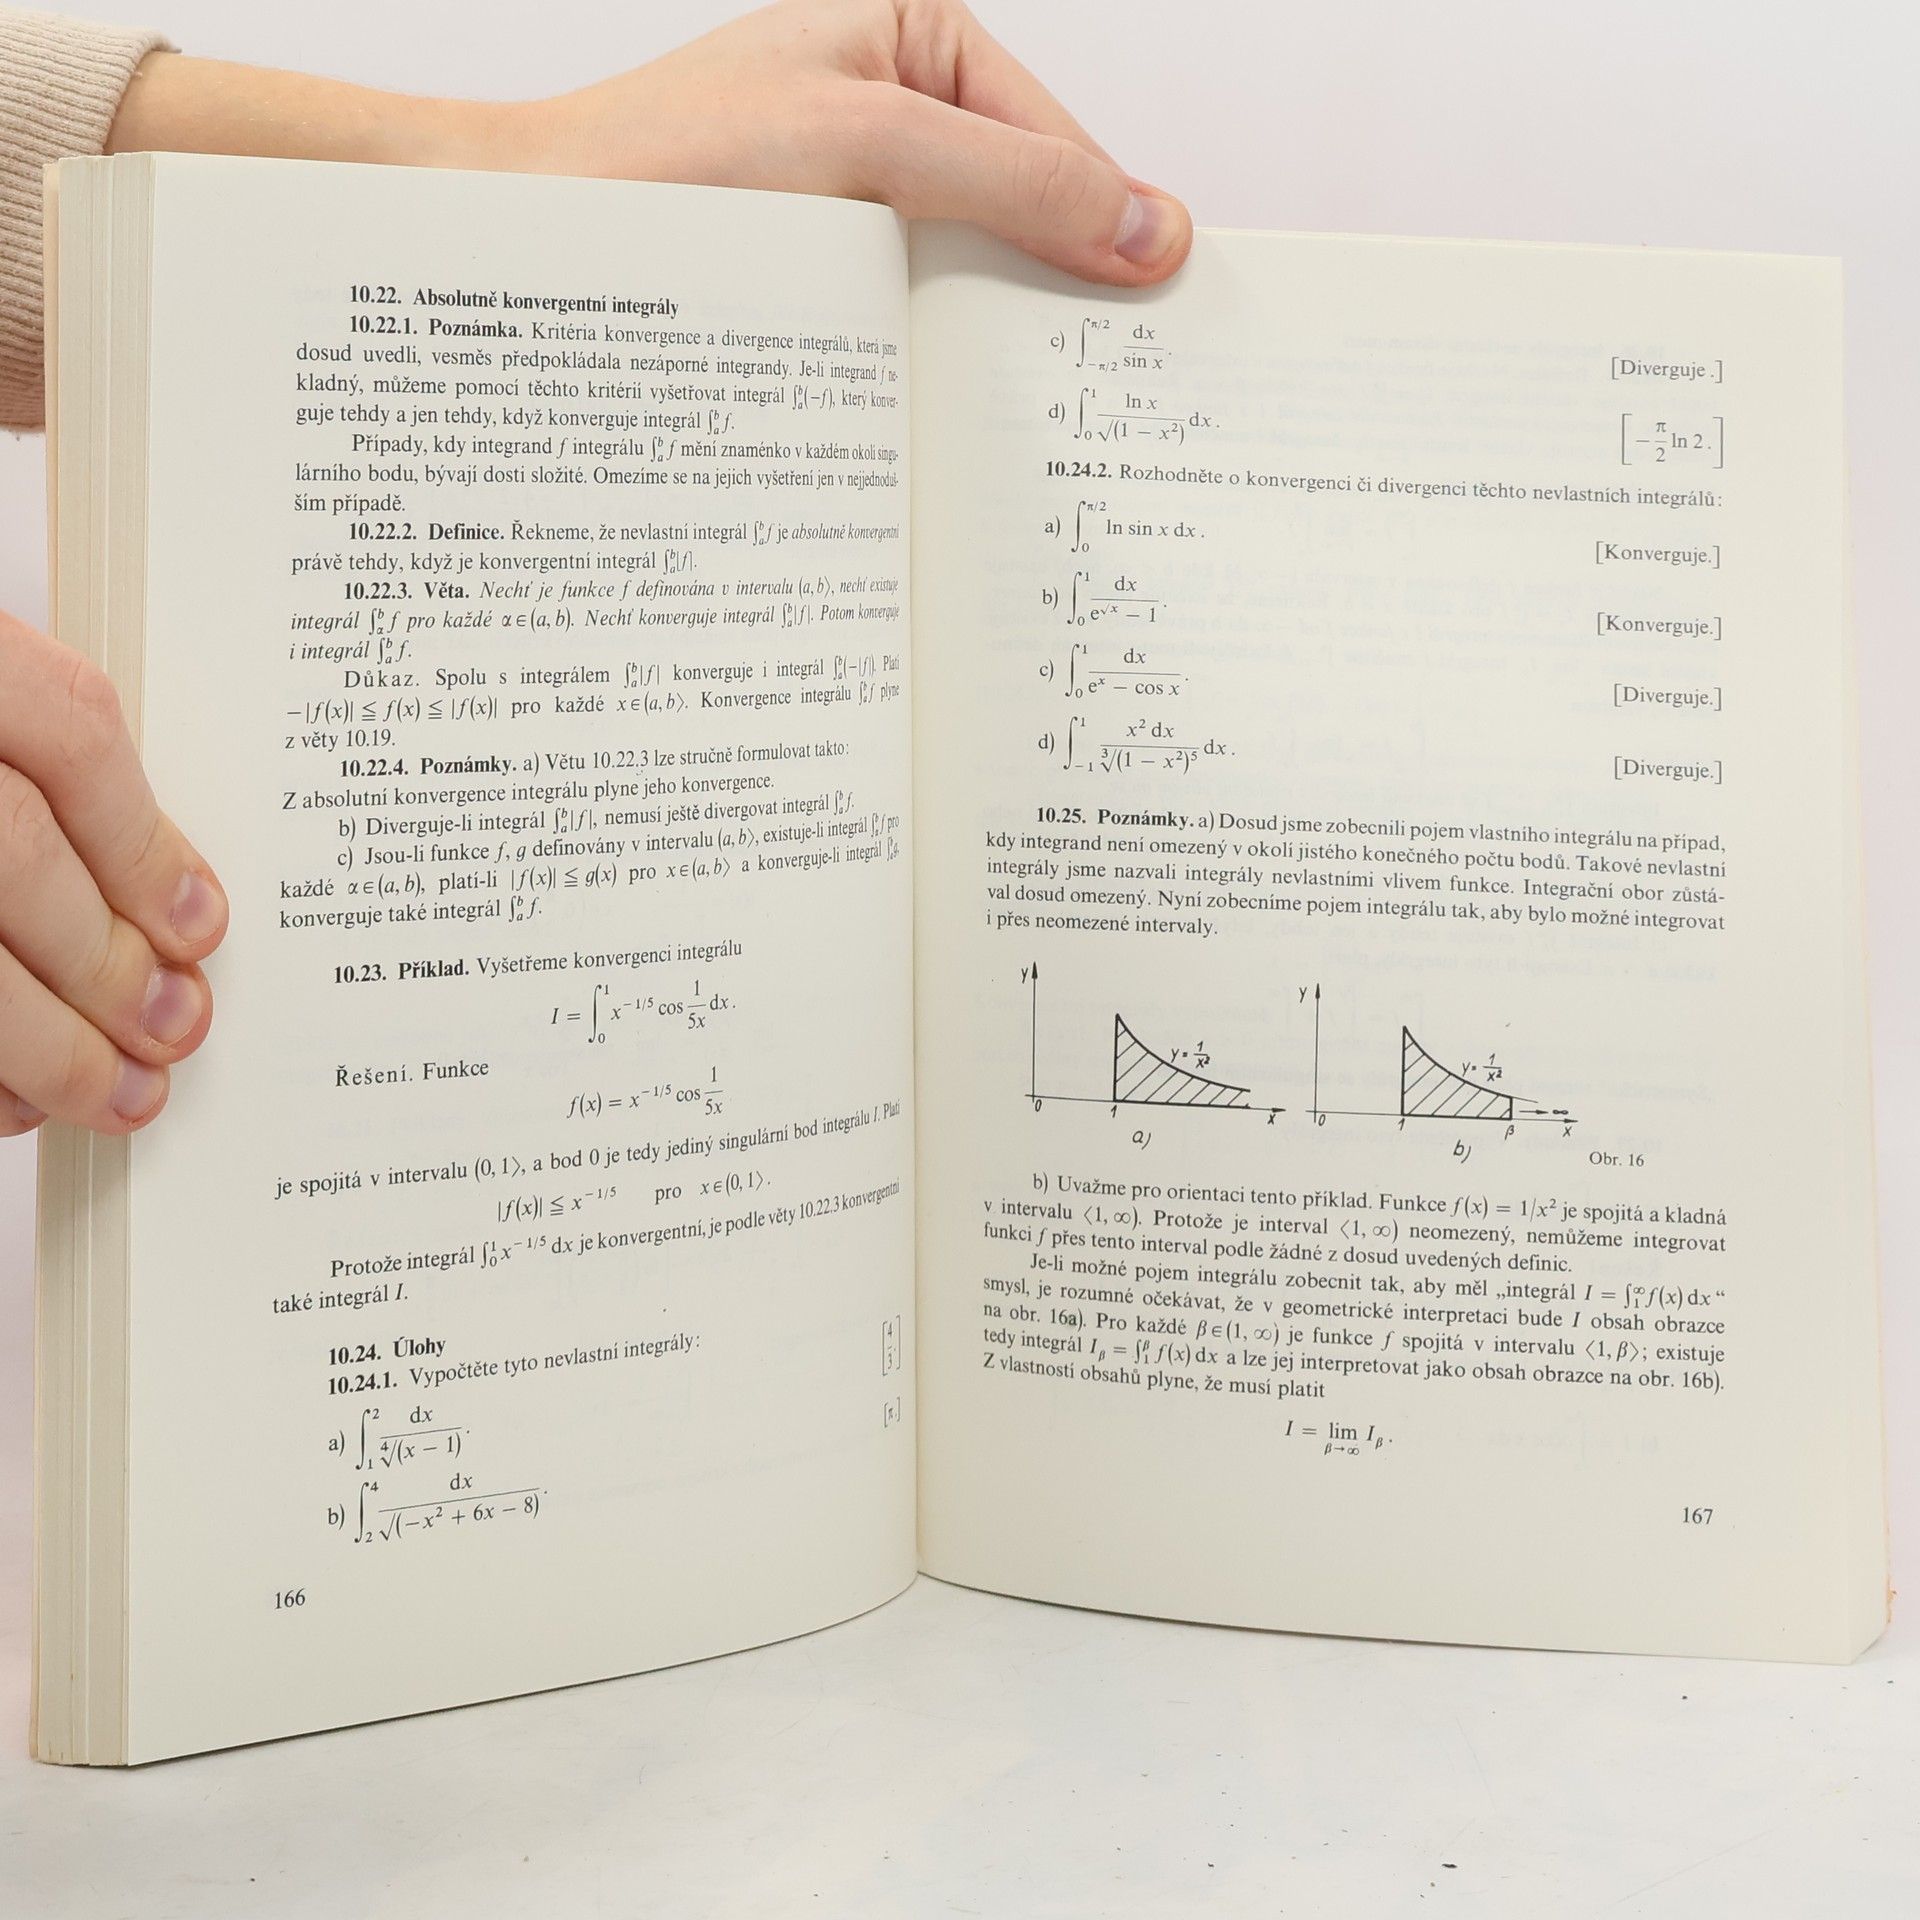 10.22. Absolutně konvergentní integrály
10.22.1. Poznámka. Kritéria konvergence a divergence integrálů, která jsme
dosud uvedli, vesměs předpokládala nezáporné integrandy. Je-li integrand f ne-
kladný, můžeme pomocí těchto kritérií vyšetřovat integrál ∫ₐᵇ(−f), který konver-
guje tehdy a jen tehdy, když konverguje integrál ∫ₐᵇ f.
Případy, kdy integrand f integrálu ∫ₐᵇ f mění znaménko v každém okolí singu-
lárního bodu, bývají dosti složité. Omezíme se na jejich vyšetření jen v nejjednoduš-
ším případě.
10.22.2. Definice. Řekneme, že nevlastní integrál ∫ₐᵇ f je absolutně konvergentní
právě tehdy, když je konvergentní integrál ∫ₐᵇ|f|.
10.22.3. Věta. Nechť je funkce f definována v intervalu (a, b⟩, nechť existuje
integrál ∫_α^b f pro každé α∈(a, b). Nechť konverguje integrál ∫ₐᵇ|f|. Potom konverguje
i integrál ∫ₐᵇ f.
Důkaz. Spolu s integrálem ∫ₐᵇ|f| konverguje i integrál ∫ₐᵇ(−|f|). Platí
−|f(x)| ≦ f(x) ≦ |f(x)| pro každé x∈(a, b⟩. Konvergence integrálu ∫ₐᵇ f plyne
z věty 10.19.
10.22.4. Poznámky. a) Větu 10.22.3 lze stručně formulovat takto:
Z absolutní konvergence integrálu plyne jeho konvergence.
b) Diverguje-li integrál ∫ₐᵇ|f|, nemusí ještě divergovat integrál ∫ₐᵇ f.
c) Jsou-li funkce f, g definovány v intervalu (a, b⟩, existuje-li integrál ∫_α^b f pro
každé α∈(a, b), platí-li |f(x)| ≦ g(x) pro x∈(a, b⟩ a konverguje-li integrál ∫ₐᵇ g,
konverguje také integrál ∫ₐᵇ f.
10.23. Příklad. Vyšetřeme konvergenci integrálu
I = ∫₀¹ x^(−1/5) cos 1/(5x) dx.
Řešení. Funkce
f(x) = x^(−1/5) cos 1/(5x)
je spojitá v intervalu (0, 1⟩, a bod 0 je tedy jediný singulární bod integrálu I. Platí
|f(x)| ≦ x^(−1/5) pro x∈(0, 1⟩.
Protože integrál ∫₀¹ x^(−1/5) dx je konvergentní, je podle věty 10.22.3 konvergentní
také integrál I.
10.24. Úlohy
10.24.1. Vypočtěte tyto nevlastní integrály:
a) ∫₁² dx/∜(x − 1). [4/3.]
b) ∫₂⁴ dx/√(−x² + 6x − 8). [π.]
166
c) ∫_{−π/2}^{π/2} dx/sin x. [Diverguje.]
d) ∫₀¹ ln x/√(1 − x²) dx. [−π/2 ln 2.]
10.24.2. Rozhodněte o konvergenci či divergenci těchto nevlastních integrálů:
a) ∫₀^{π/2} ln sin x dx. [Konverguje.]
b) ∫₀¹ dx/(e^√x − 1). [Konverguje.]
c) ∫₀¹ dx/(eˣ − cos x). [Diverguje.]
d) ∫₋₁¹ x² dx/∛(1 − x²)⁵ dx. [Diverguje.]
10.25. Poznámky. a) Dosud jsme zobecnili pojem vlastního integrálu na případ,
kdy integrand není omezený v okolí jistého konečného počtu bodů. Takové nevlastní
integrály jsme nazvali integrály nevlastními vlivem funkce. Integrační obor zůstá-
val dosud omezený. Nyní zobecníme pojem integrálu tak, aby bylo možné integrovat
i přes neomezené intervaly.
y y
y = 1/x² y = 1/x²
0 1 x 0 1 β → ∞ x
a) b) Obr. 16
b) Uvažme pro orientaci tento příklad. Funkce f(x) = 1/x² je spojitá a kladná
v intervalu ⟨1, ∞). Protože je interval ⟨1, ∞) neomezený, nemůžeme integrovat
funkci f přes tento interval podle žádné z dosud uvedených definic.
Je-li možné pojem integrálu zobecnit tak, aby měl „integrál I = ∫₁^∞ f(x) dx“
smysl, je rozumné očekávat, že v geometrické interpretaci bude I obsah obrazce
na obr. 16a). Pro každé β∈(1, ∞) je funkce f spojitá v intervalu ⟨1, β⟩; existuje
tedy integrál I_β = ∫₁^β f(x) dx a lze jej interpretovat jako obsah obrazce na obr. 16b).
Z vlastností obsahů plyne, že musí platit
I = lim_{β→∞} I_β.
167